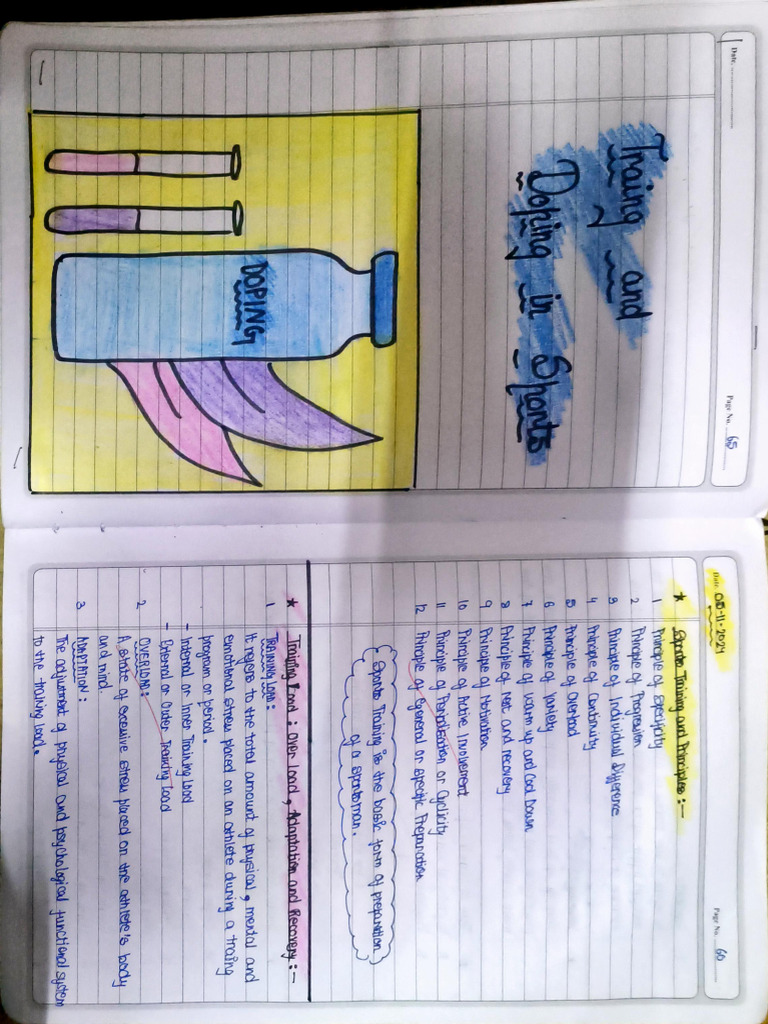 Date
Page No. 65
Traing and
Doping in Sports
DOPING
Date 05-11-2024
Page No. 66
★ Sports Training and Principles :-
1 Principle of Specificity
2 Principle of Progression
3 Principle of Individual Difference
4 Principle of Continuity
5 Principle of Overload
6 Principle of Variety
7 Principle of warm up and Cool Down
8 Principle of rest and recovery
9 Principle of Motivation
10 Principle of Active Involvement
11 Principle of Periodisation or Cyclicity
12 Principle of General or specific Preparation
Sports Training is the basic form of preparation
of a sportsman.
★ Training Load : Over Load , Adaptation and Recovery :-
1 TRAINING LOAD :
It refers to the total amount of physical , mental and
emotional stress placed on an athlete during a traing
program or period .
- Internal or Inner Training Load
- External or Outer Training Load
2 OVERLOAD :
A state of excessive stress placed on the athlete's body
and mind.
3 ADAPTATION :
The adjustment of physical and psychological functional system
to the training load .